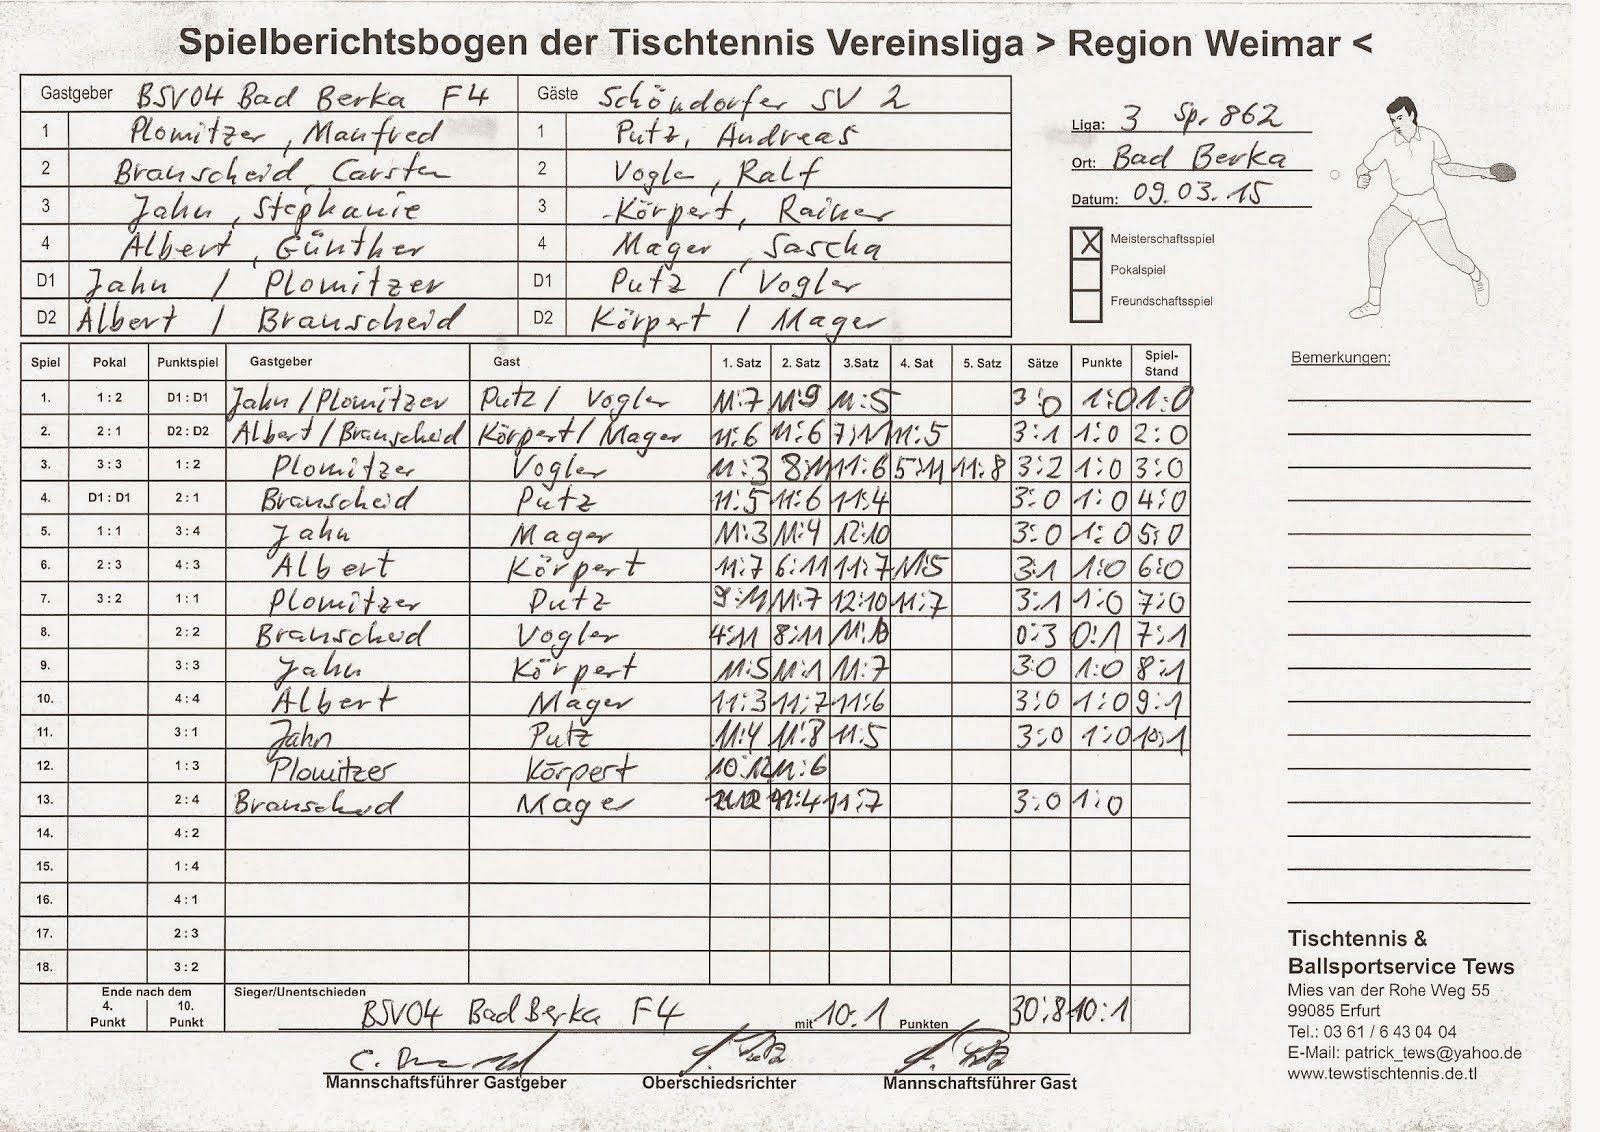 Spielberichtsbogen der Tischtennis Vereinsliga > Region Weimar <
Gastgeber BSV04 Bad Berka F4 Gäste Schöndorfer SV 2
1 Plomitzer, Manfred 1 Putz, Andreas
2 Branscheid, Carsten 2 Vogler, Ralf
3 Jahn, Stephanie 3 Körpert, Rainer
4 Albert, Günther 4 Mager, Sascha
D1 Jahn / Plomitzer D1 Putz / Vogler
D2 Albert / Branscheid D2 Körpert / Mager
Liga: 3 Sp. 862
Ort: Bad Berka
Datum: 09.03.15
X Meisterschaftsspiel
Pokalspiel
Freundschaftsspiel
Spiel Pokal Punktspiel Gastgeber Gast 1. Satz 2. Satz 3.Satz 4. Sat 5. Satz Sätze Punkte Spiel-Stand
1. 1 : 2 D1 : D1 Jahn / Plomitzer Putz / Vogler 11:7 11:9 11:5 3:0 1:0 1:0
2. 2 : 1 D2 : D2 Albert / Branscheid Körpert / Mager 11:6 11:6 7:11 11:5 3:1 1:0 2:0
3. 3 : 3 1 : 2 Plomitzer Vogler 11:3 8:11 11:6 5:11 11:8 3:2 1:0 3:0
4. D1 : D1 2 : 1 Branscheid Putz 11:5 11:6 11:4 3:0 1:0 4:0
5. 1 : 1 3 : 4 Jahn Mager 11:3 11:4 12:10 3:0 1:0 5:0
6. 2 : 3 4 : 3 Albert Körpert 11:7 6:11 11:7 11:5 3:1 1:0 6:0
7. 3 : 2 1 : 1 Plomitzer Putz 9:11 11:7 12:10 11:7 3:1 1:0 7:0
8. 2 : 2 Branscheid Vogler 4:11 8:11 0:3 0:1 7:1
9. 3 : 3 Jahn Körpert 11:5 11:1 11:7 3:0 1:0 8:1
10. 4 : 4 Albert Mager 11:3 11:7 11:6 3:0 1:0 9:1
11. 3 : 1 Jahn Putz 11:4 11:8 11:5 3:0 1:0 10:1
12. 1 : 3 Plomitzer Körpert 10:12 11:6
13. 2 : 4 Branscheid Mager 11:7 3:0 1:0
14. 4 : 2
15. 1 : 4
16. 4 : 1
17. 2 : 3
18. 3 : 2
Ende nach dem
4. Punkt 10. Punkt
Sieger/Unentschieden
BSV04 Bad Berka F4 mit 10:1 Punkten 30:8 10:1
Mannschaftsführer Gastgeber Oberschiedsrichter Mannschaftsführer Gast
Bemerkungen:
Tischtennis &
Ballsportservice Tews
Mies van der Rohe Weg 55
99085 Erfurt
Tel.: 03 61 / 6 43 04 04
E-Mail: patrick_tews@yahoo.de
www.tewstischtennis.de.tl